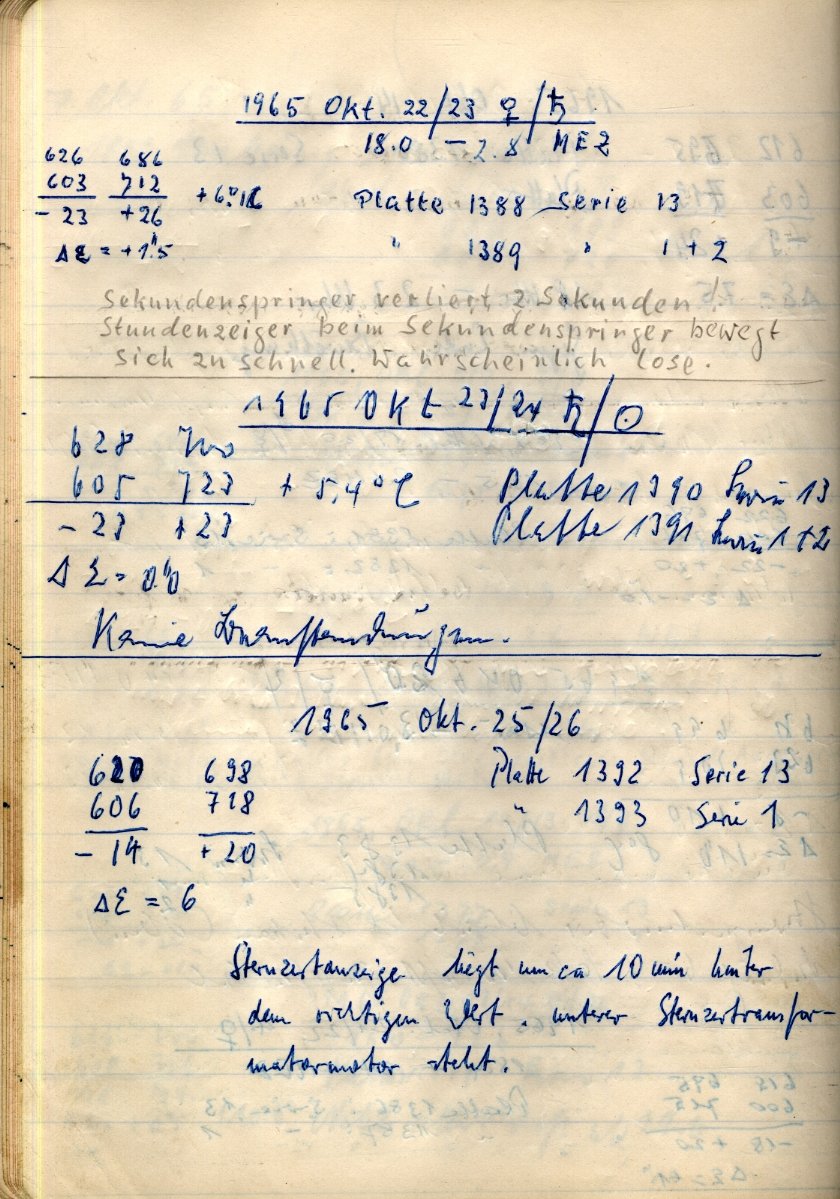 1965 Okt. 22/23 ♀/♄
18.0 – 2.8 MEZ
626 686
603 712 +6.°1C Platte 1388 Serie 13
– 23 +26
ΔΣ = +1."5 " 1389 " 1 + 2
Sekundenspringer verliert 2 Sekunden!
Stundenzeiger beim Sekundenspringer bewegt
sich zu schnell. Wahrscheinlich lose.
1965 Okt 23/24 ♄/☉
628 700
605 723 + 5,4°C Platte 1390 Serie 13
– 23 +23 Platte 1391 Serie 1+2
ΔΣ = 0."0
Keine Beanstandungen.
1965 Okt. 25/26
620 698 Platte 1392 Serie 13
606 718 " 1393 Serie 1
– 14 +20
ΔΣ = 6
Sternzeitanzeige liegt um ca 10 min hinter
dem richtigen Wert. unterer Sternzeittransfor-
matormotor steht.